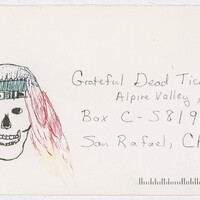 Grateful Dead Tic
Alpine Valley,
Box C-S819
San Rafael, C